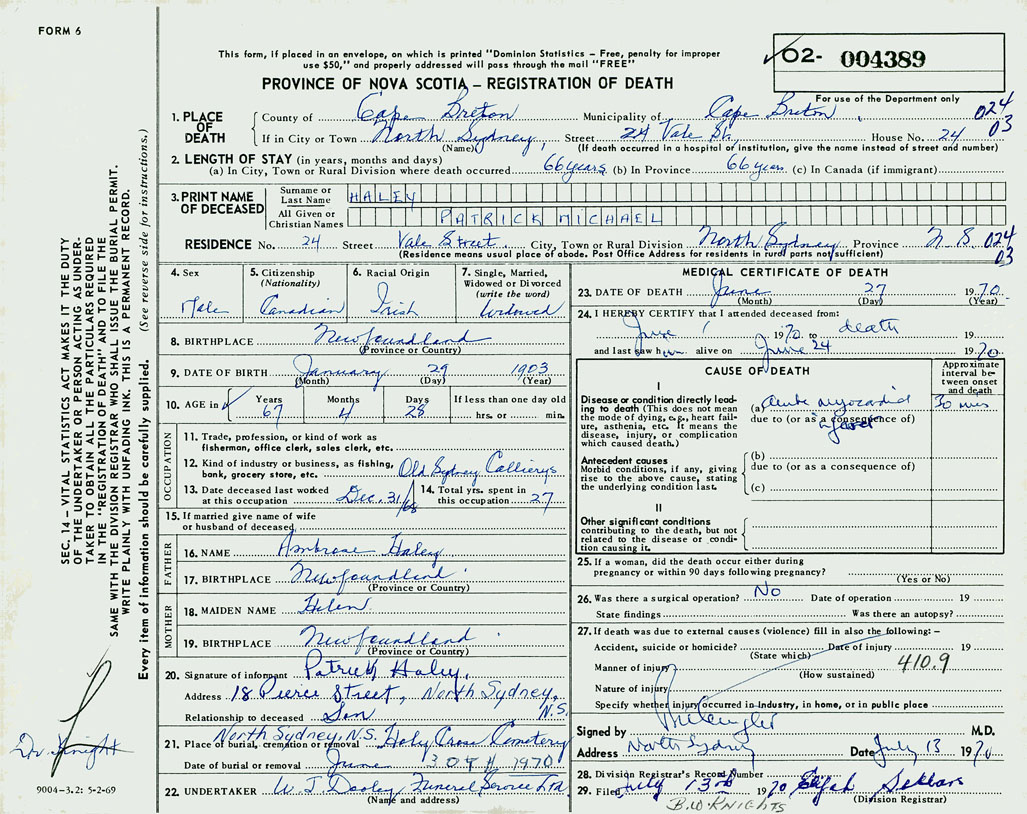 FORM 6
This form, if placed in an envelope, on which is printed "Dominion Statistics – Free, penalty for improper
use $50," and properly addressed will pass through the mail "FREE"
O2- 004389
For use of the Department only
PROVINCE OF NOVA SCOTIA – REGISTRATION OF DEATH
024
03
1. PLACE OF DEATH
County of Cape Breton Municipality of Cape Breton
If in City or Town North Sydney, Street 24 Vale St. House No. 24
(Name) (If death occurred in a hospital or institution, give the name instead of street and number)
2. LENGTH OF STAY (in years, months and days)
(a) In City, Town or Rural Division where death occurred 66 years (b) In Province 66 years (c) In Canada (if immigrant)
3. PRINT NAME OF DECEASED
Surname or Last Name HALEY
All Given or Christian Names PATRICK MICHAEL
RESIDENCE No. 24 Street Vale Street. City, Town or Rural Division North Sydney Province N S 024
03
(Residence means usual place of abode. Post Office Address for residents in rural parts not sufficient)
4. Sex
Male
5. Citizenship
(Nationality)
Canadian
6. Racial Origin
Irish
7. Single, Married,
Widowed or Divorced
(write the word)
Widowed
8. BIRTHPLACE Newfoundland
(Province or Country)
9. DATE OF BIRTH January 29 1903
(Month) (Day) (Year)
10. AGE in Years Months Days If less than one day old
67 4 28 hrs. or min.
OCCUPATION
11. Trade, profession, or kind of work as
fisherman, office clerk, sales clerk, etc.
12. Kind of industry or business, as fishing,
bank, grocery store, etc. Old Sydney Collierys
13. Date deceased last worked
at this occupation Dec. 31/68
14. Total yrs. spent in
this occupation 27
15. If married give name of wife
or husband of deceased
FATHER
16. NAME Ambrose Haley
17. BIRTHPLACE Newfoundland
(Province or Country)
MOTHER
18. MAIDEN NAME Helen
19. BIRTHPLACE Newfoundland
(Province or Country)
20. Signature of informant Patrick Haley.
Address 18 Pierce Street, North Sydney, N.S.
Relationship to deceased Son
North Sydney, N.S.
21. Place of burial, cremation or removal Holy Cross Cemetery
Date of burial or removal June 30th 1970
22. UNDERTAKER W. J. Dooley Funeral Service Ltd
(Name and address)
MEDICAL CERTIFICATE OF DEATH
23. DATE OF DEATH June 27 1970
(Month) (Day) (Year)
24. I HEREBY CERTIFY that I attended deceased from:
June 1 1970 to death 19
and last saw him alive on June 24 1970
CAUSE OF DEATH
Approximate
interval be-
tween onset
and death
I
Disease or condition directly lead-
ing to death (This does not mean
the mode of dying, e.g., heart fail-
ure, asthenia, etc. It means the
disease, injury, or complication
which caused death.)
(a) Acute myocardial 30 mins
due to (or as a consequence of)
infarct
Antecedent causes
Morbid conditions, if any, giving
rise to the above cause, stating
the underlying condition last.
(b)
due to (or as a consequence of)
(c)
II
Other significant conditions
contributing to the death, but not
related to the disease or condi-
tion causing it.
25. If a woman, did the death occur either during
pregnancy or within 90 days following pregnancy?
(Yes or No)
26. Was there a surgical operation? No Date of operation 19
State findings Was there an autopsy?
27. If death was due to external causes (violence) fill in also the following: –
Accident, suicide or homicide? Date of injury 19
(State which)
Manner of injury 410.9
(How sustained)
Nature of injury
Specify whether injury occurred in Industry, in home, or in public place
Signed by M.D.
Address North Sydney Date July 13 1970
28. Division Registrar's Record Number
29. Filed July 13th 1970
(Division Registrar)
B.W KNIGHTS
SEC. 14 – VITAL STATISTICS ACT MAKES IT THE DUTY
OF THE UNDERTAKER OR PERSON ACTING AS UNDER-
TAKER TO OBTAIN ALL THE PARTICULARS REQUIRED
IN THE "REGISTRATION OF DEATH" AND TO FILE THE
SAME WITH THE DIVISION REGISTRAR WHO SHALL ISSUE THE BURIAL PERMIT.
WRITE PLAINLY WITH UNFADING INK. THIS IS A PERMANENT RECORD.
Every item of information should be carefully supplied. (See reverse side for instructions.)
Dr. Knight
9004-3.2: 5-2-69